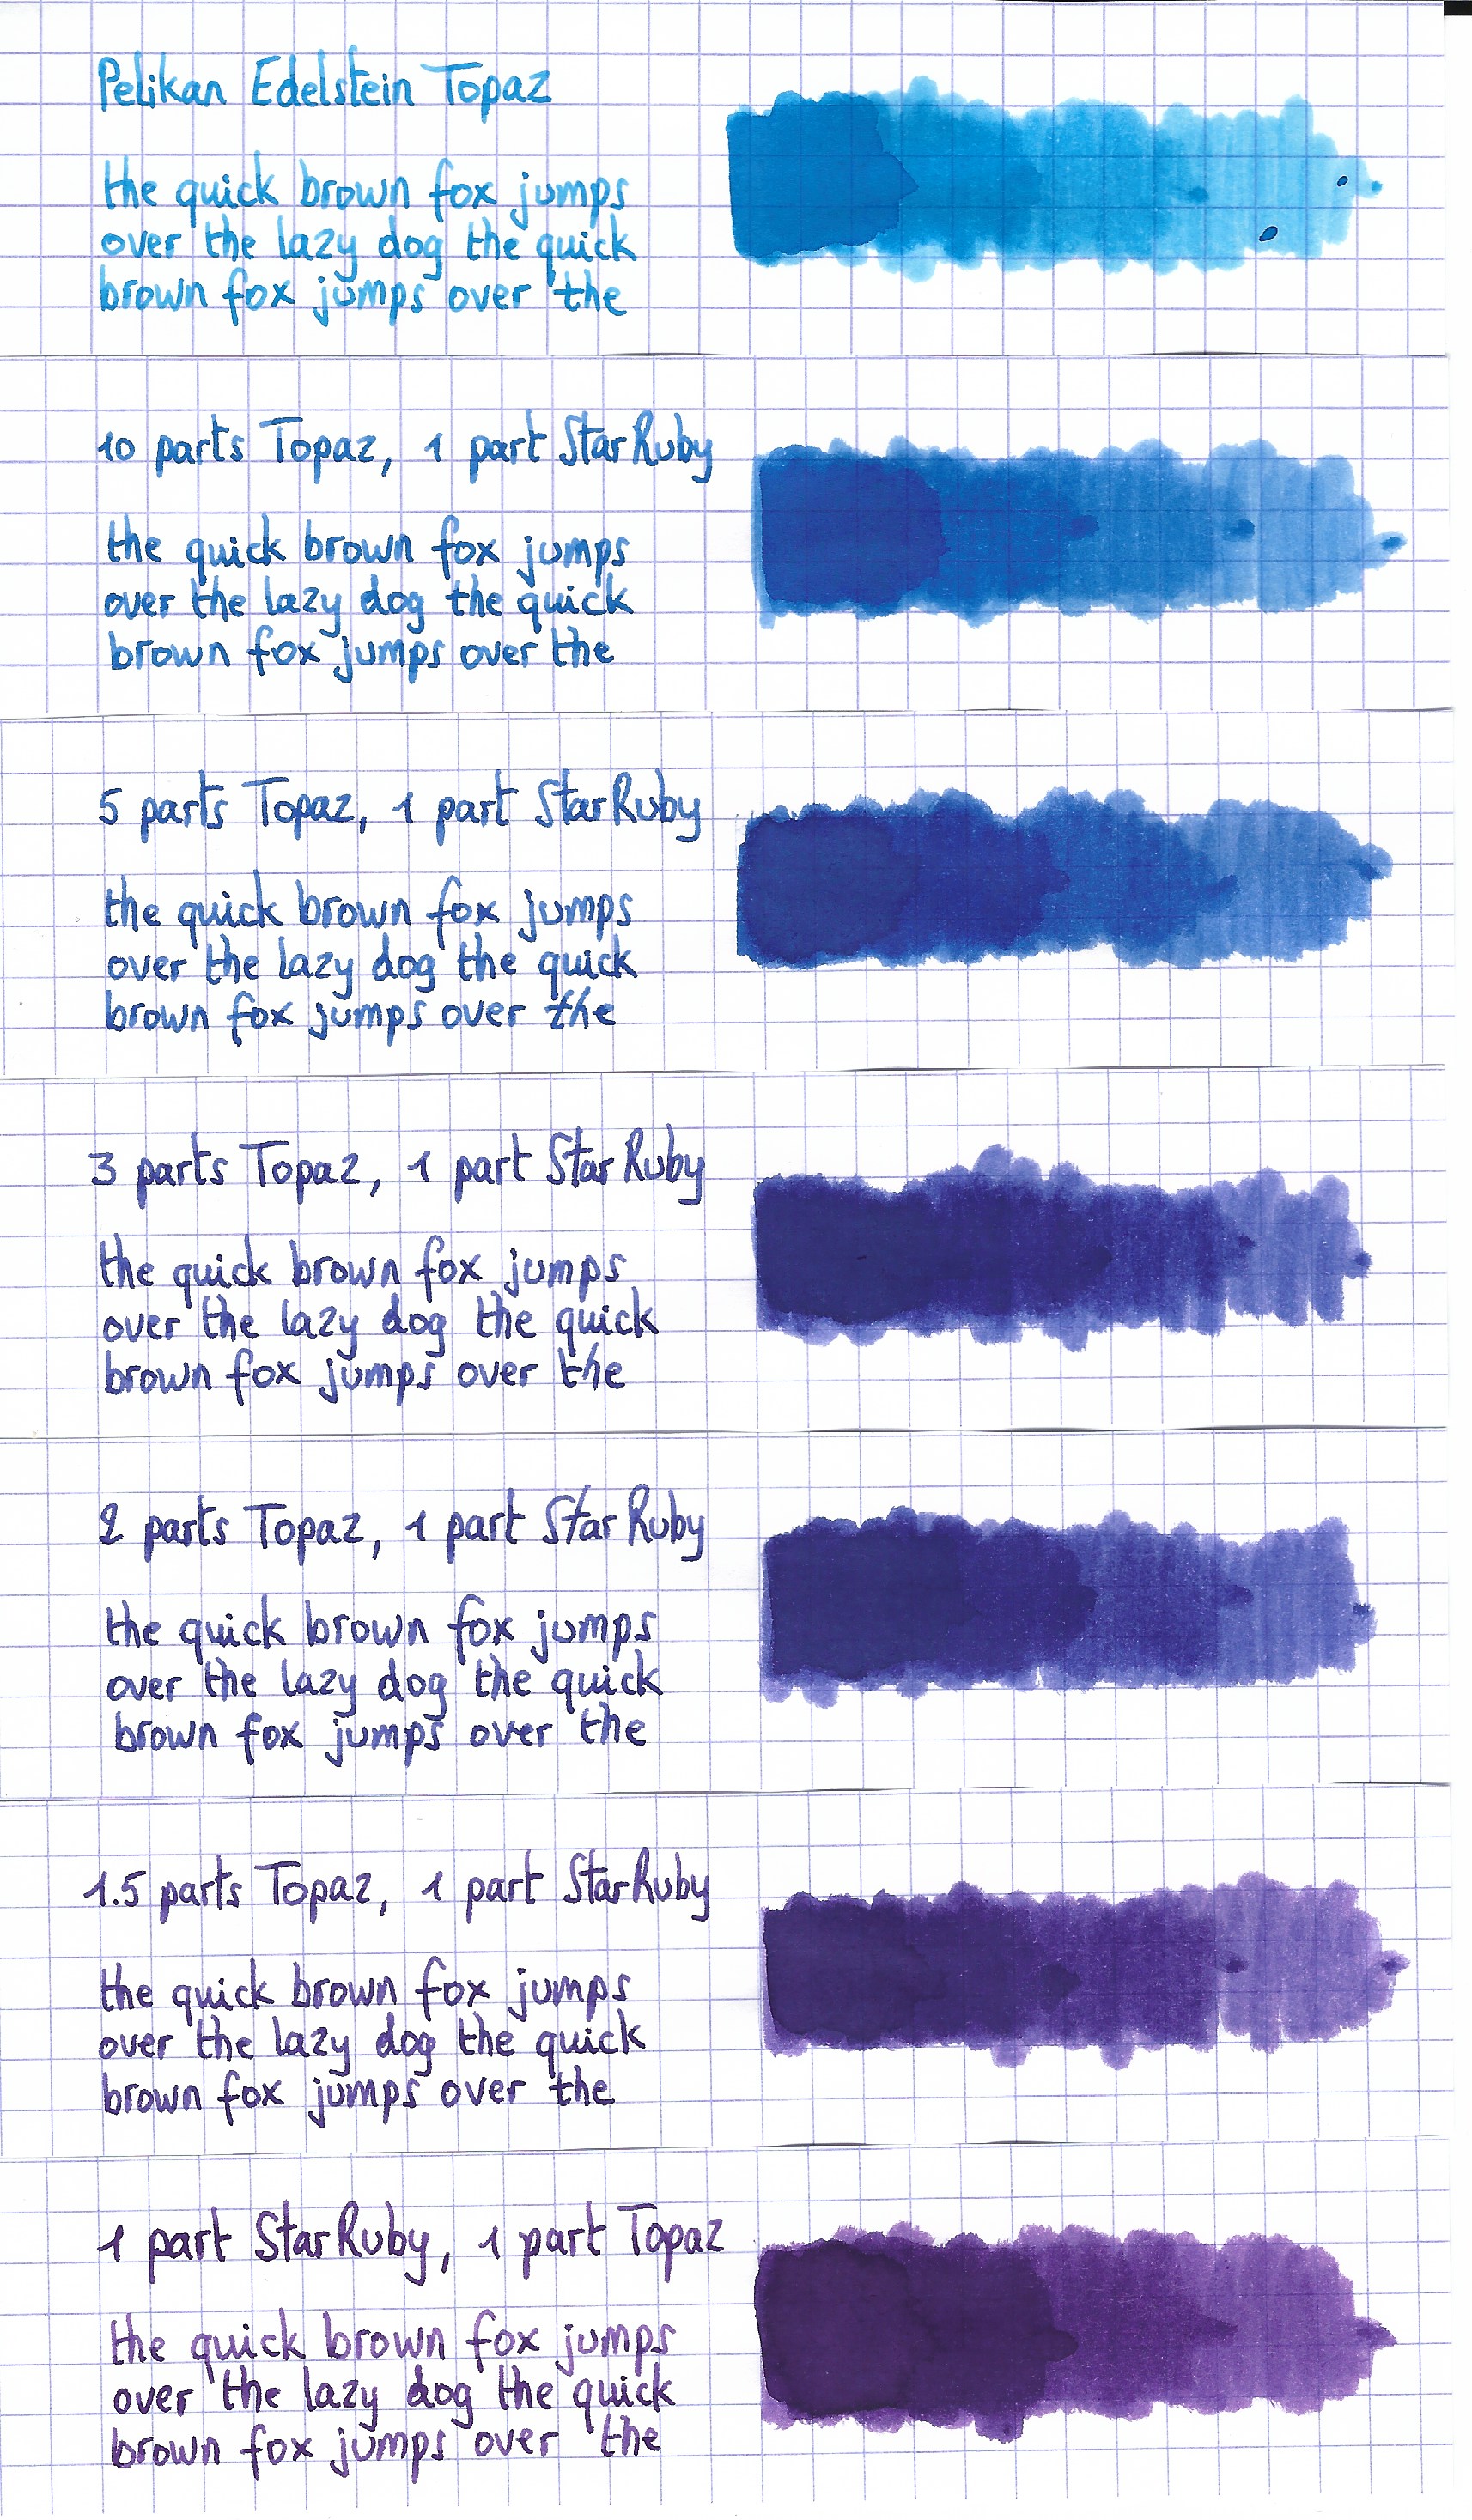 Pelikan Edelstein Topaz
the quick brown fox jumps
over the lazy dog the quick
brown fox jumps over the
10 parts Topaz, 1 part Star Ruby
the quick brown fox jumps
over the lazy dog the quick
brown fox jumps over the
5 parts Topaz, 1 part Star Ruby
the quick brown fox jumps
over the lazy dog the quick
brown fox jumps over the
3 parts Topaz, 1 part Star Ruby
the quick brown fox jumps
over the lazy dog the quick
brown fox jumps over the
2 parts Topaz, 1 part Star Ruby
the quick brown fox jumps
over the lazy dog the quick
brown fox jumps over the
1.5 parts Topaz, 1 part Star Ruby
the quick brown fox jumps
over the lazy dog the quick
brown fox jumps over the
1 part Star Ruby, 1 part Topaz
the quick brown fox jumps
over the lazy dog the quick
brown fox jumps over the